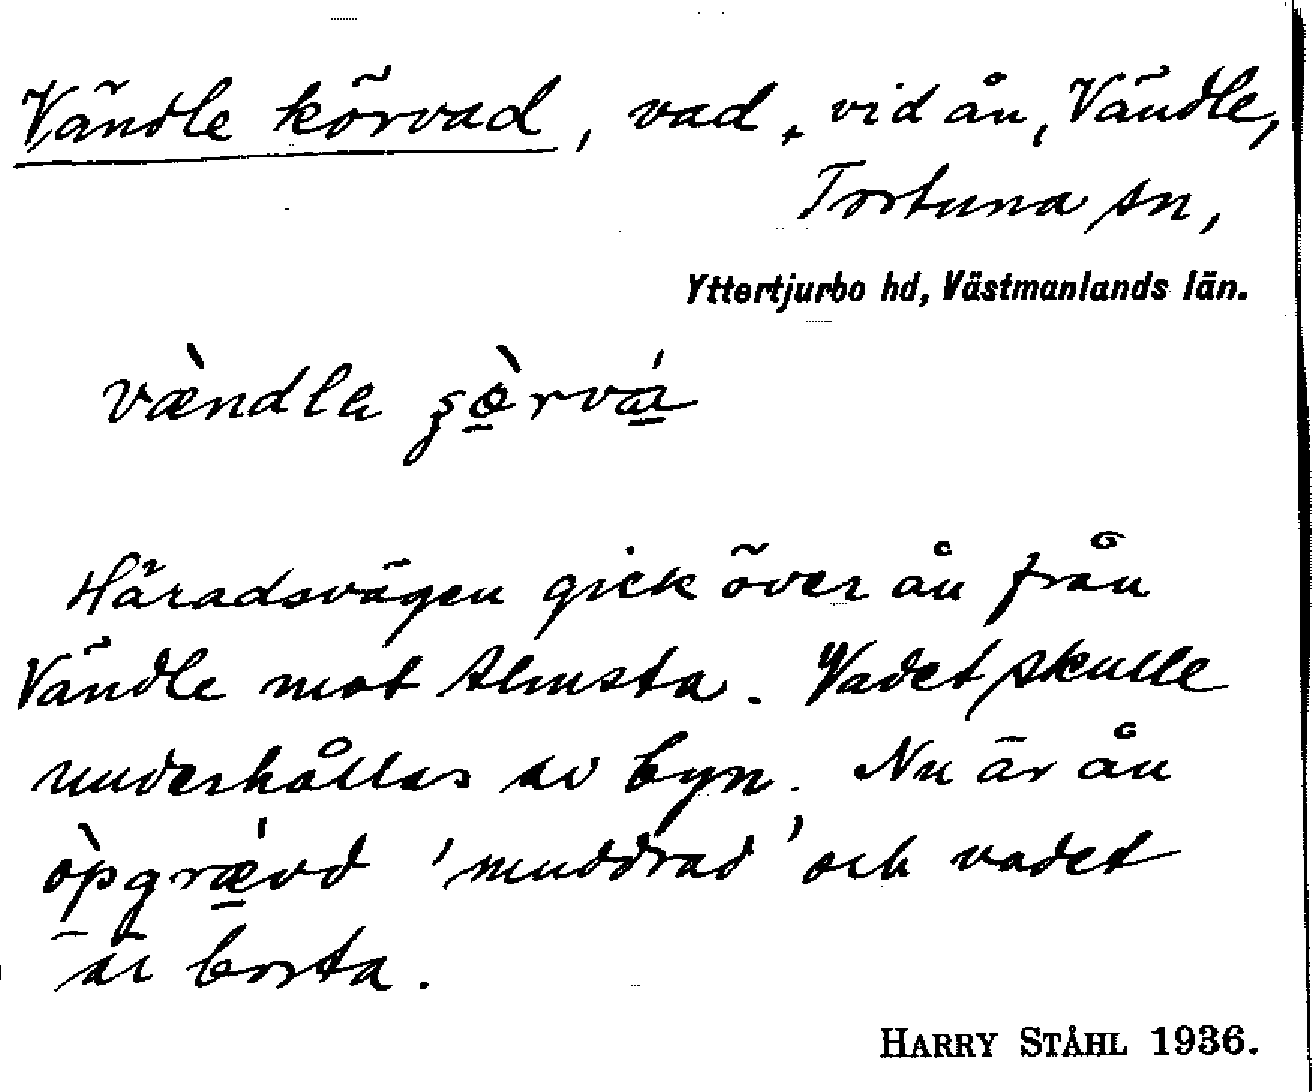 Vändle körvad, vad, vid ån, Vändle,
Tortuna sn,
Yttertjurbo hd, Västmanlands län.
væ̀ndla ʂö̀rvá
Häradsvägen gick över ån från
Vändle mot Almsta. Vadet skulle
underhållas av byn. Nu är ån
òpgrǽvd 'muddrad' och vadet
är borta.
HARRY STÅHL 1936.